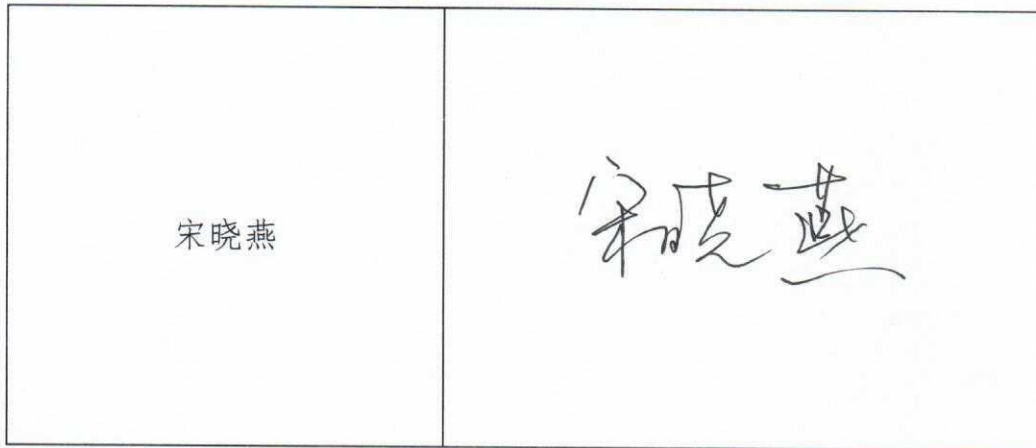 宋晓燕
宋晓燕